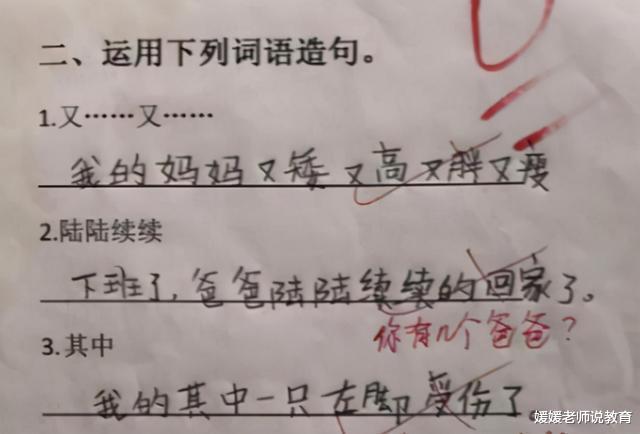 二、运用下列词语造句。
1.又……又……
我的妈妈又矮又高又胖又瘦
2.陆陆续续
下班了,爸爸陆陆续续的回家了。
你有几个爸爸?
3.其中
我的其中一只左脚受伤了。
媛媛老师说教育